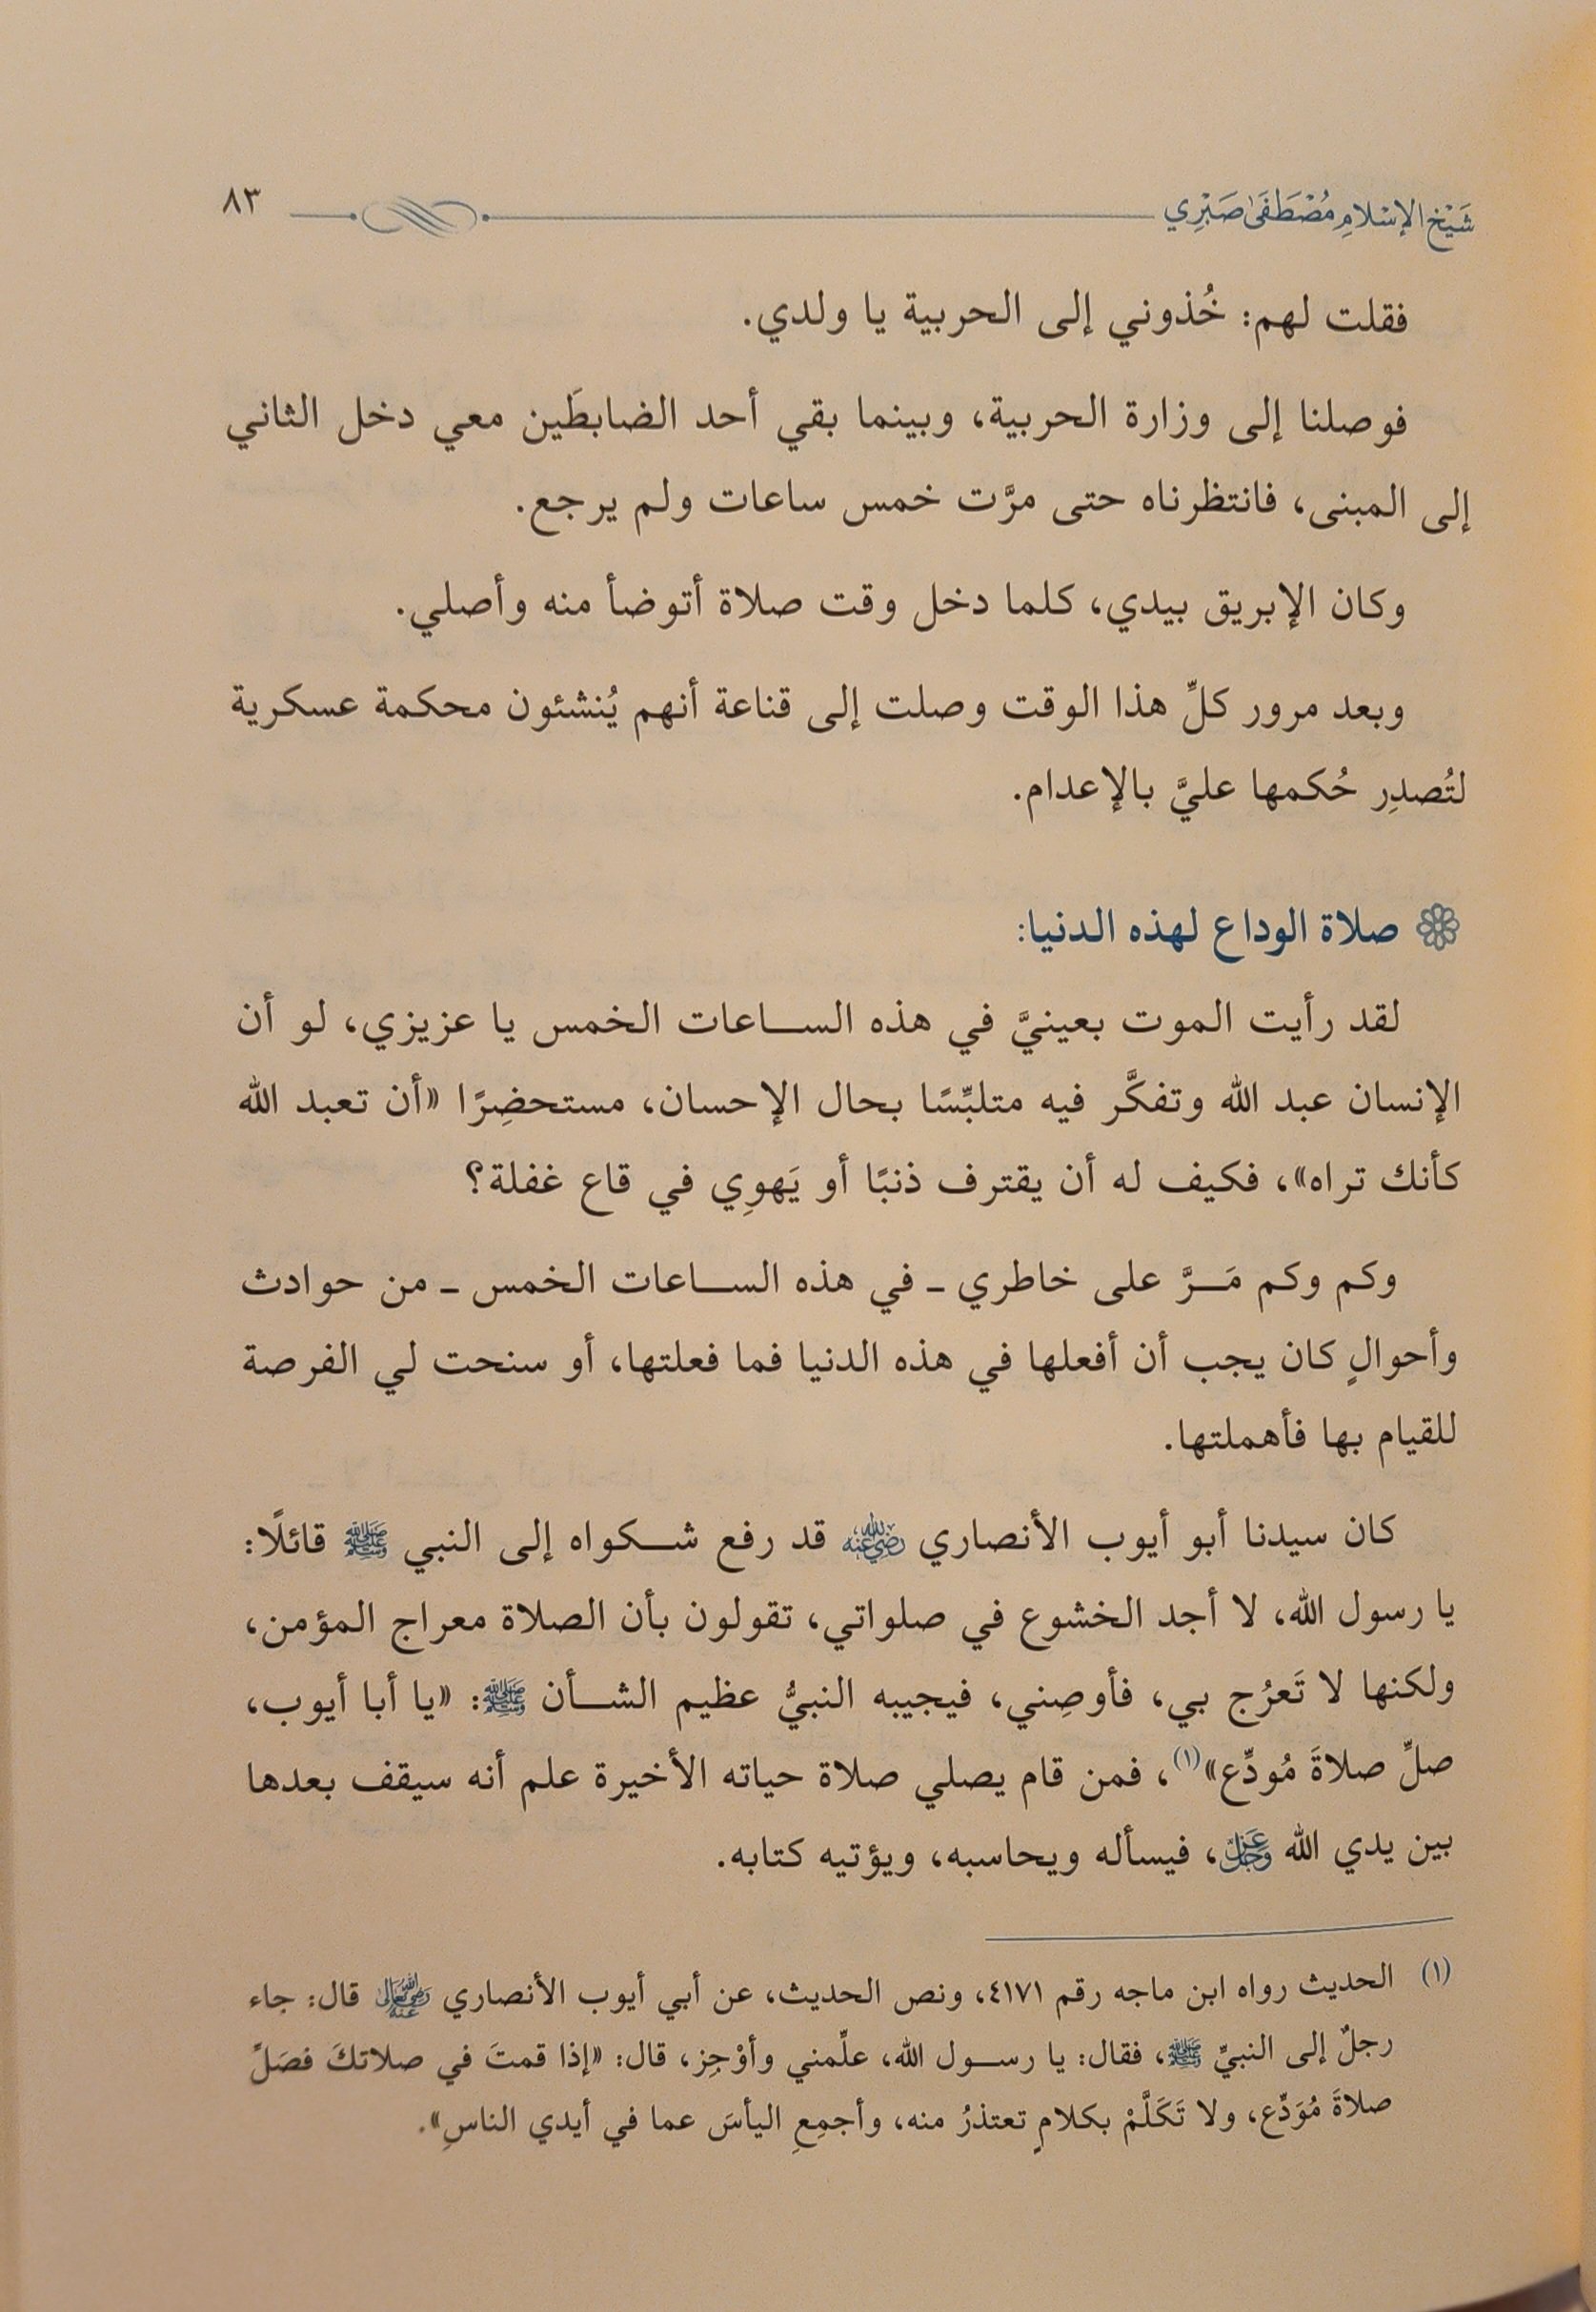 شَيْخ الإسْلامِ مُصْطَفَى صَبْرِي ٨٣
فقلت لهم: خُذوني إلى الحربية يا ولدي.
فوصلنا إلى وزارة الحربية، وبينما بقي أحد الضابطَين معي دخل الثاني
إلى المبنى، فانتظرناه حتى مرَّت خمس ساعات ولم يرجع.
وكان الإبريق بيدي، كلما دخل وقت صلاة أتوضأ منه وأصلي.
وبعد مرور كلِّ هذا الوقت وصلت إلى قناعة أنهم يُنشئون محكمة عسكرية
لتُصدِر حُكمها عليَّ بالإعدام.
صلاة الوداع لهذه الدنيا:
لقد رأيت الموت بعينيَّ في هذه الساعات الخمس يا عزيزي، لو أن
الإنسان عبد الله وتفكَّر فيه متلبِّسًا بحال الإحسان، مستحضِرًا «أن تعبد الله
كأنك تراه»، فكيف له أن يقترف ذنبًا أو يَهوِي في قاع غفلة؟
وكم وكم مَرَّ على خاطري - في هذه الساعات الخمس - من حوادث
وأحوالٍ كان يجب أن أفعلها في هذه الدنيا فما فعلتها، أو سنحت لي الفرصة
للقيام بها فأهملتها.
كان سيدنا أبو أيوب الأنصاري رضي الله عنه قد رفع شكواه إلى النبي ﷺ قائلًا:
يا رسول الله، لا أجد الخشوع في صلواتي، تقولون بأن الصلاة معراج المؤمن،
ولكنها لا تَعرُج بي، فأوصِني، فيجيبه النبيُّ عظيم الشأن ﷺ: «يا أبا أيوب،
صلِّ صلاةَ مُودِّع»(١)، فمن قام يصلي صلاة حياته الأخيرة علم أنه سيقف بعدها
بين يدي الله عز وجل، فيسأله ويحاسبه، ويؤتيه كتابه.
(١) الحديث رواه ابن ماجه رقم ٤١٧١، ونص الحديث، عن أبي أيوب الأنصاري رضي الله تعالى عنه قال: جاء
رجلٌ إلى النبيِّ ﷺ، فقال: يا رسول الله، علِّمني وأوْجِز، قال: «إذا قمتَ في صلاتكَ فصَلِّ
صلاةَ مُوَدِّع، ولا تَكَلَّمْ بكلامٍ تعتذرُ منه، وأجمِعِ اليأسَ عما في أيدي الناسِ».